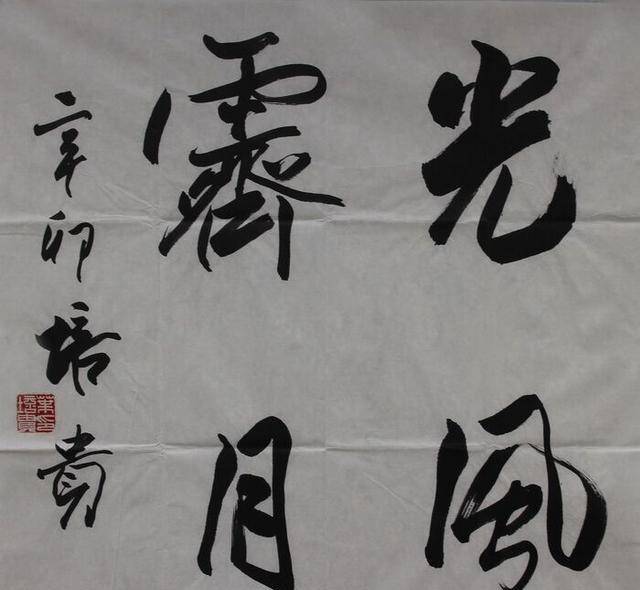 光風
霽月
辛卯培貴